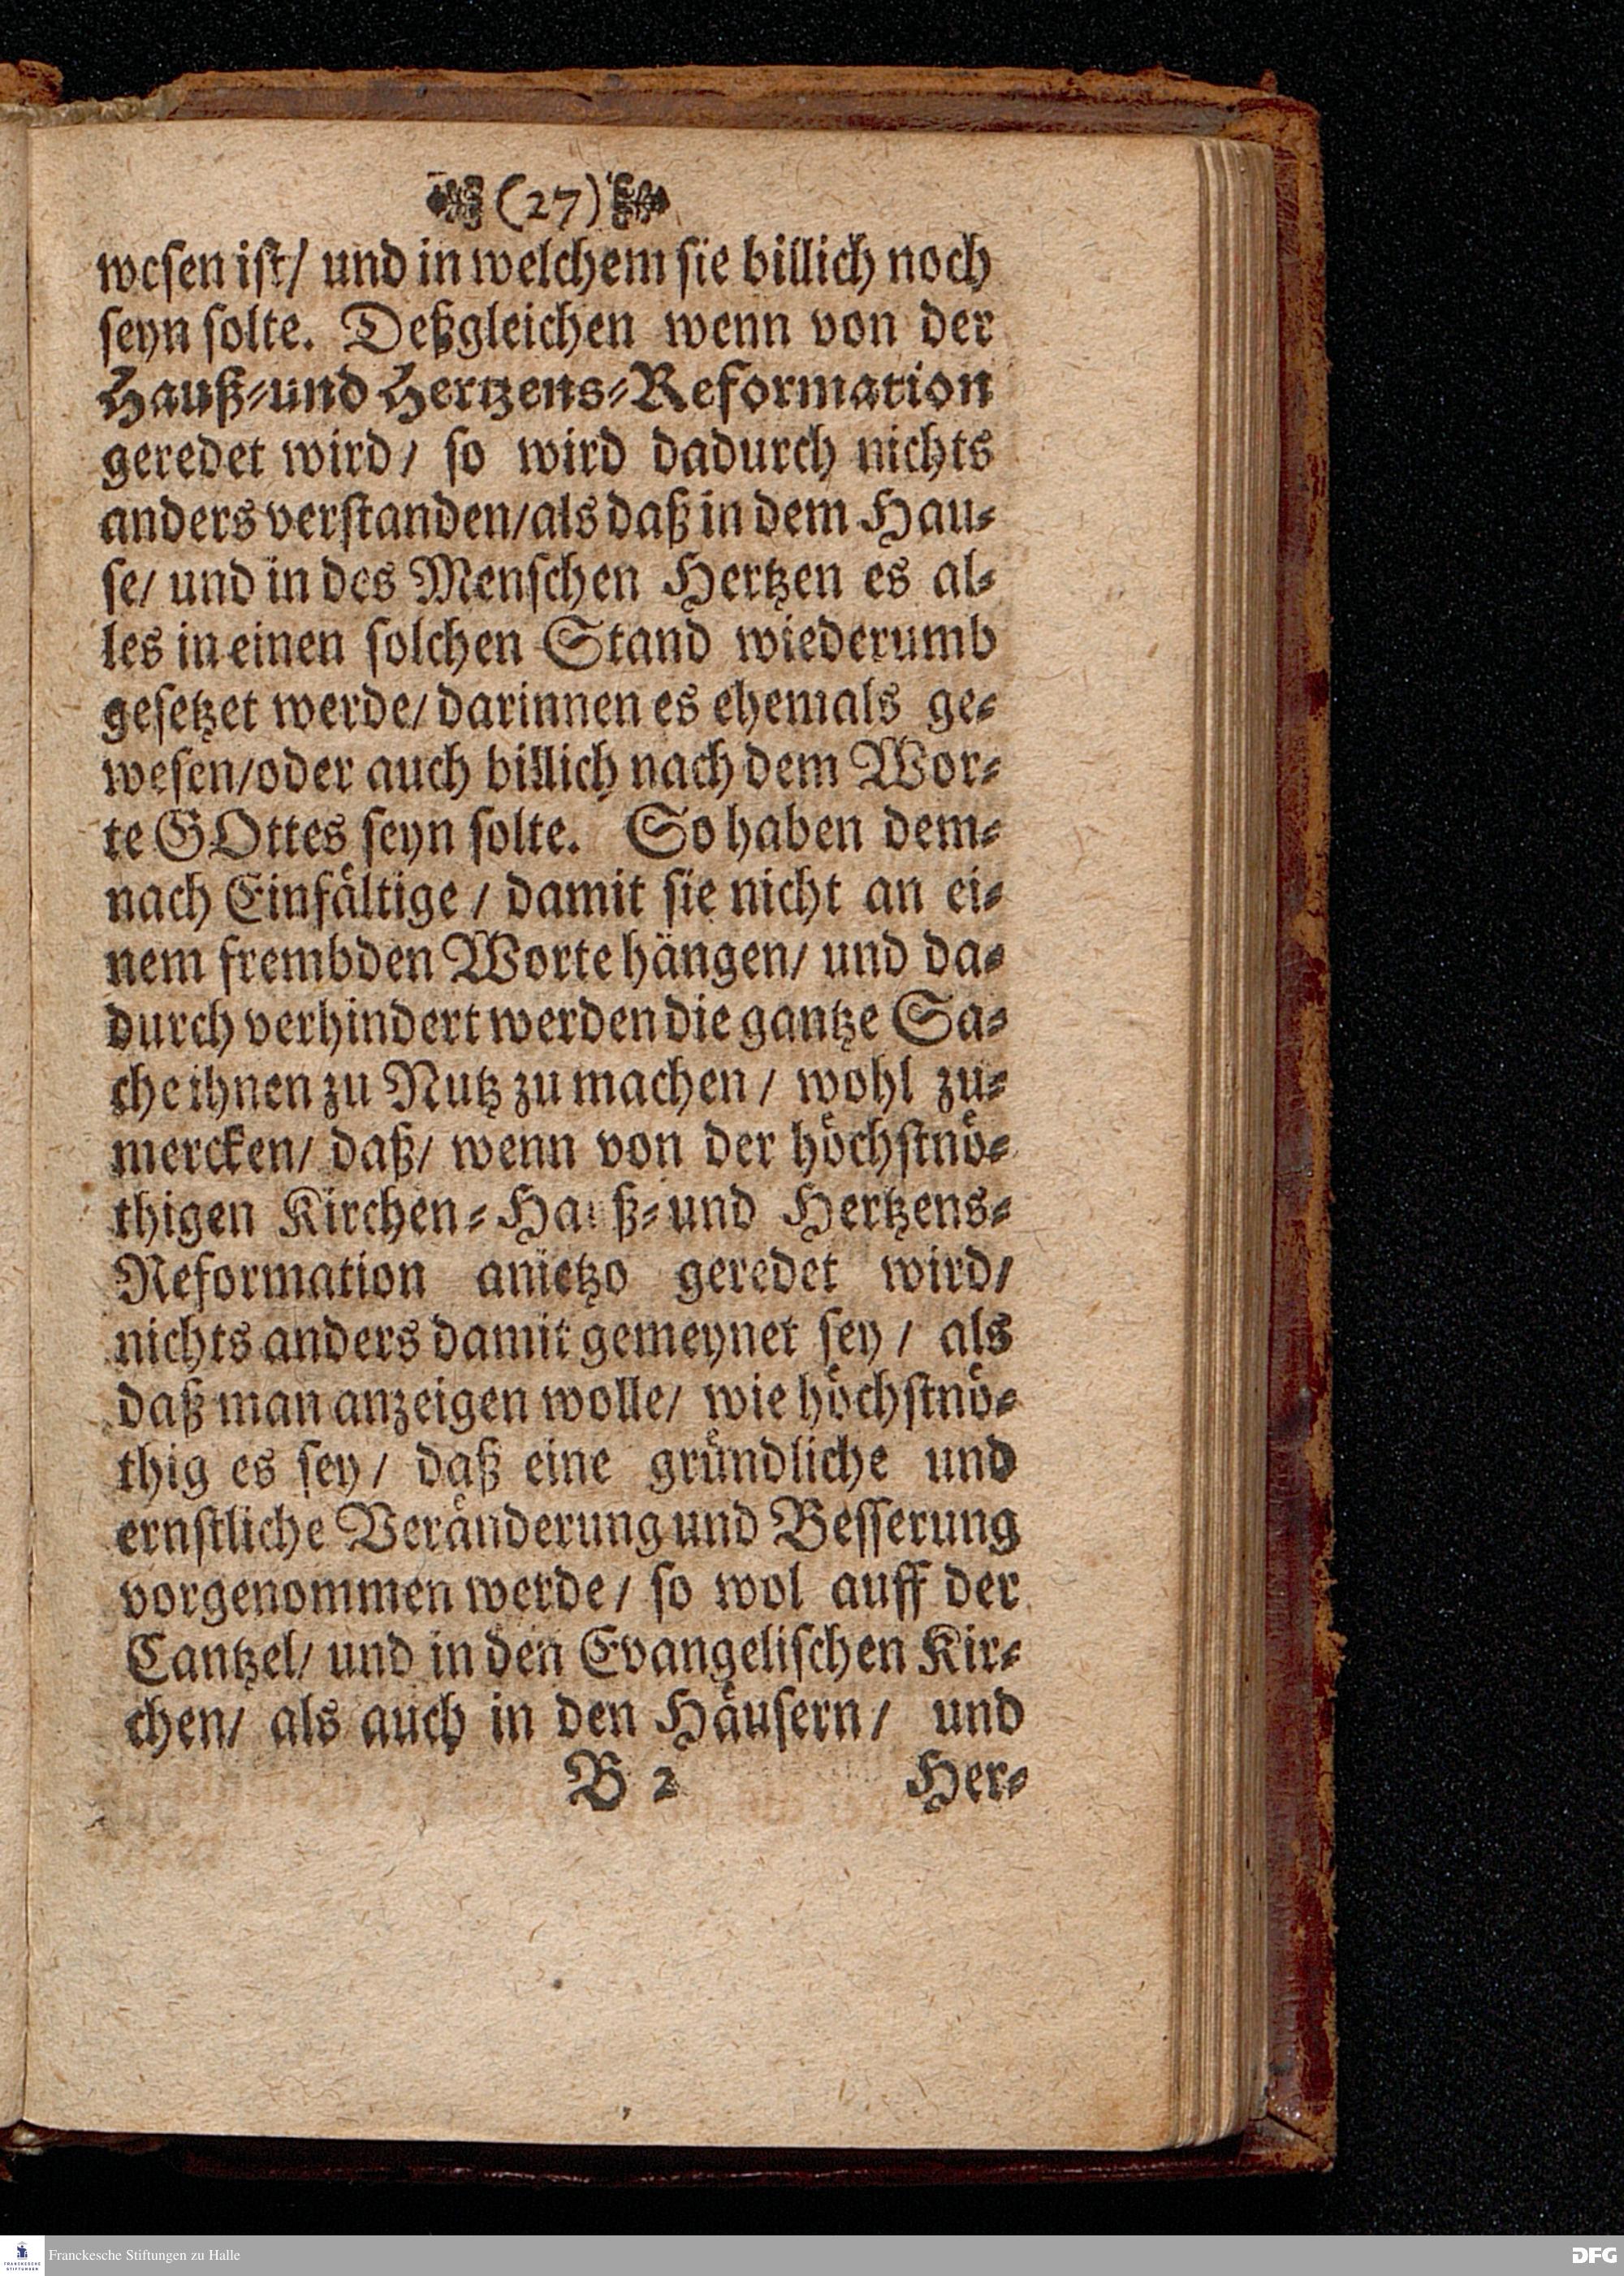 (27)
wesen ist/ und in welchem sie billich noch
seyn solte. Deßgleichen wenn von der
Hauß-und Hertzens-Reformation
geredet wird/ so wird dadurch nichts
anders verstanden/als daß in dem Hau-
se/ und in des Menschen Hertzen es al-
les in einen solchen Stand wiederumb
gesetzet werde/ darinnen es ehemals ge-
wesen/oder auch billich nach dem Wor-
te GOttes seyn solte. So haben dem-
nach Einfältige / damit sie nicht an ei-
nem frembden Worte hängen/ und da-
durch verhindert werden die gantze Sa-
che ihnen zu Nutz zu machen / wohl zu-
mercken/ daß/ wenn von der höchstnö-
thigen Kirchen-Hauß-und Hertzens-
Reformation anietzo geredet wird/
nichts anders damit gemeynet sey / als
daß man anzeigen wolle/ wie höchstnö-
thig es sey / daß eine gründliche und
ernstliche Veränderung und Besserung
vorgenommen werde / so wol auff der
Cantzel/ und in den Evangelischen Kir-
chen/ als auch in den Häusern / und
B 2 Her-
Franckesche Stiftungen zu Halle
DFG